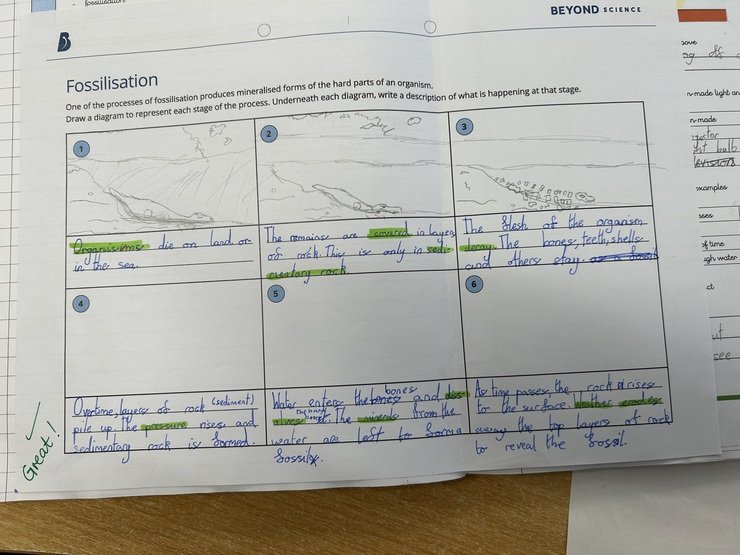 fossilisation
BEYOND SCIENCE
Fossilisation
One of the processes of fossilisation produces mineralised forms of the hard parts of an organism.
Draw a diagram to represent each stage of the process. Underneath each diagram, write a description of what is happening at that stage.
1
2
3
Organisms die on land or
in the sea.
The remains are covered in layers
of rock. This is only in sedi-
mentary rock
The flesh of the organism
decay. The bones, teeth, shells
and others stay.
4
5
6
Overtime, layers of rock (sediment)
pile up, the pressure rises and
sedimentary rock is formed.
Water enters the bones and dis-
olves the hard bones. The minerals from the
water are left to form a
fossil.
As time passes, the rock rises
to the surface. Weather erodes
the top layers of rock
to reveal the fossil.
Great!
n-made light an
n-made
bulb
examples
of time
ugh water
ct